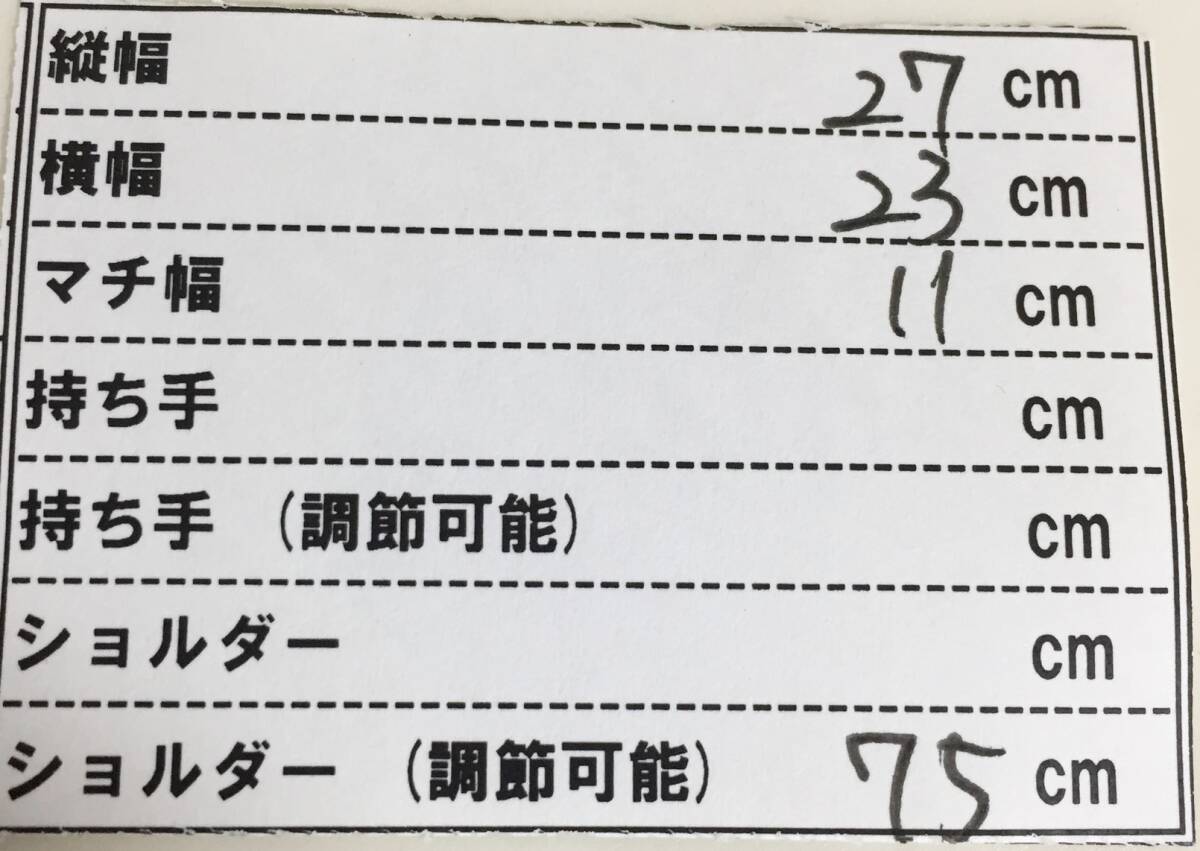 縦幅 27 cm
横幅 23 cm
マチ幅 11 cm
持ち手 cm
持ち手 (調節可能) cm
ショルダー cm
ショルダー (調節可能) 75 cm